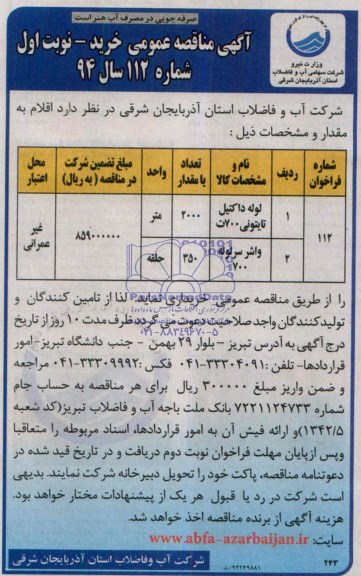 صرفه جویی در مصرف آب هنر است
وزارت نیرو
شرکت سهامی آب و فاضلاب
استان آذربایجان شرقی
آگهی مناقصه عمومی خرید – نوبت اول
شماره ۱۱۲ سال ۹۴
شرکت آب و فاضلاب استان آذربایجان شرقی در نظر دارد اقلام به
مقدار و مشخصات ذیل :
شماره فراخوان ردیف نام و مشخصات کالا تعداد یا مقدار واحد مبلغ تضمین شرکت در مناقصه ( به ریال) محل اعتبار
۱۱۲ ۱ لوله داکتیل تایتونی ۷۰۰ت ۲۰۰۰ متر ۸۵۹۰۰۰۰۰۰ غیر عمرانی
۲ واشر سرلوله ۷۰۰ ۳۵۰ حلقه
را از طریق مناقصه عمومی خریداری نماید. لذا از تامین کنندگان و
تولیدکنندگان واجد صلاحیت دعوت می گردد ظرف مدت ۱۰ روز از تاریخ
درج آگهی به آدرس تبریز – بلوار ۲۹ بهمن – جنب دانشگاه تبریز-امور
قراردادها- تلفن :۳۳۳۰۴۰۹۱-۰۴۱ فکس :۳۳۳۰۹۹۹۲-۰۴۱ مراجعه
و ضمن واریز مبلغ ۳۰۰۰۰۰ ریال برای هر مناقصه به حساب جام
شماره ۷۲۲۱۱۲۴۷۳۳ بانک ملت باجه آب و فاضلاب تبریز(کد شعبه
۱۳۴۲/۵)و ارائه فیش آن به امور قراردادها، اسناد مربوطه را متعاقبا
وپس ازپایان مهلت فراخوان نوبت دوم دریافت و در تاریخ قید شده در
دعوتنامه مناقصه، پاکت خود را تحویل دبیرخانه شرکت نمایند. بدیهی
است شرکت در رد یا قبول هر یک از پیشنهادات مختار خواهد بود.
هزینه آگهی از برنده مناقصه اخذ خواهد شد.
سایت: www.abfa-azarbaijan.ir
شرکت آب وفاضلاب استان آذربایجان شرقی
۲۴۳
ParsNamadData
۰۲۱-۸۸۳۴۹۶۷۰-۵